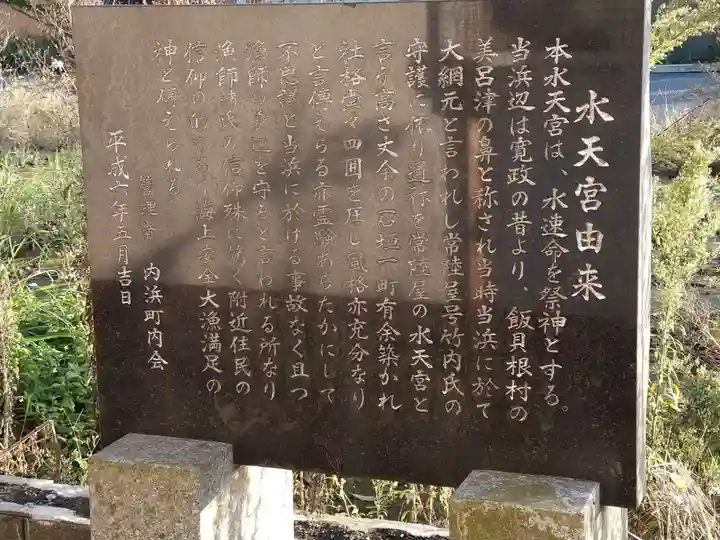 水天宮由来
本水天宮は、水速命を祭神とする。
当浜辺は寛政の昔より、飯貝根村の
美呂津の鼻と称され当時当浜に於て
大網元と言われし常陸屋号竹内氏の
守護に依り通称を常陸屋の水天宮と
言う高さ丈余の石垣一町有余築かれ
社格堂々四囲を圧し風格亦充分なり
と言傳えらる亦霊験あらたかにして
不思議と当浜に於ける事故なく且つ
漁師の身辺を守ると言われる所なり
漁師諸氏の信仰殊に篤く附近住民の
信仰の的であり海上安全大漁満足の
神と傳えられる
平成六年五月吉日
管理者 内浜町内会